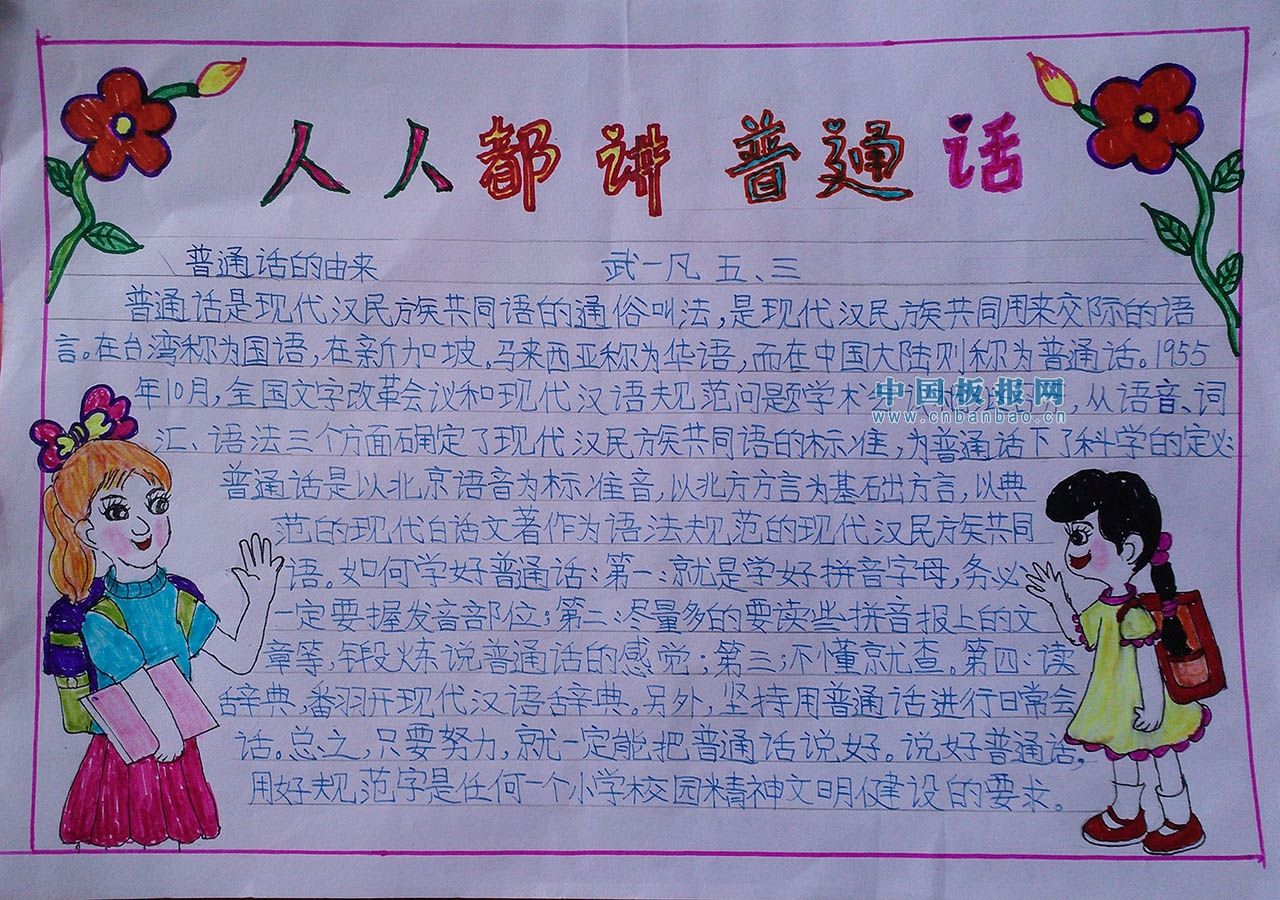 人人都讲普通话
普通话的由来 武一凡 五、三
普通话是现代汉民族共同语的通俗叫法，是现代汉民族共同用来交际的语
言。在台湾称为国语，在新加坡。马来西亚称为华语，而在中国大陆则称为普通话。1955
年10月，全国文字改革会议和现代汉语规范问题学术 从语音、词
中国板报网
www.cnbanbao.cn
汇、语法三个方面确定了现代汉民族共同语的标准，为普通话下了科学的定义：
普通话是以北京语音为标准音，以北方方言为基础出方言，以典
范的现代白话文著作为语法规范的现代汉民族共同
语。如何学好普通话：第一：就是学好拼音字母，务必
一定要握发音部位；第二：尽量多的要读些拼音报上的文
章等，锻炼说普通话的感觉；第三；不懂就查。第四：读
辞典，番羽开现代汉语辞典。另外，坚持用普通话进行日常会
话。总之，只要努力，就一定能把普通话说好。说好普通话，
用好规范字是任何一个小学校园精神文明健设的要求。